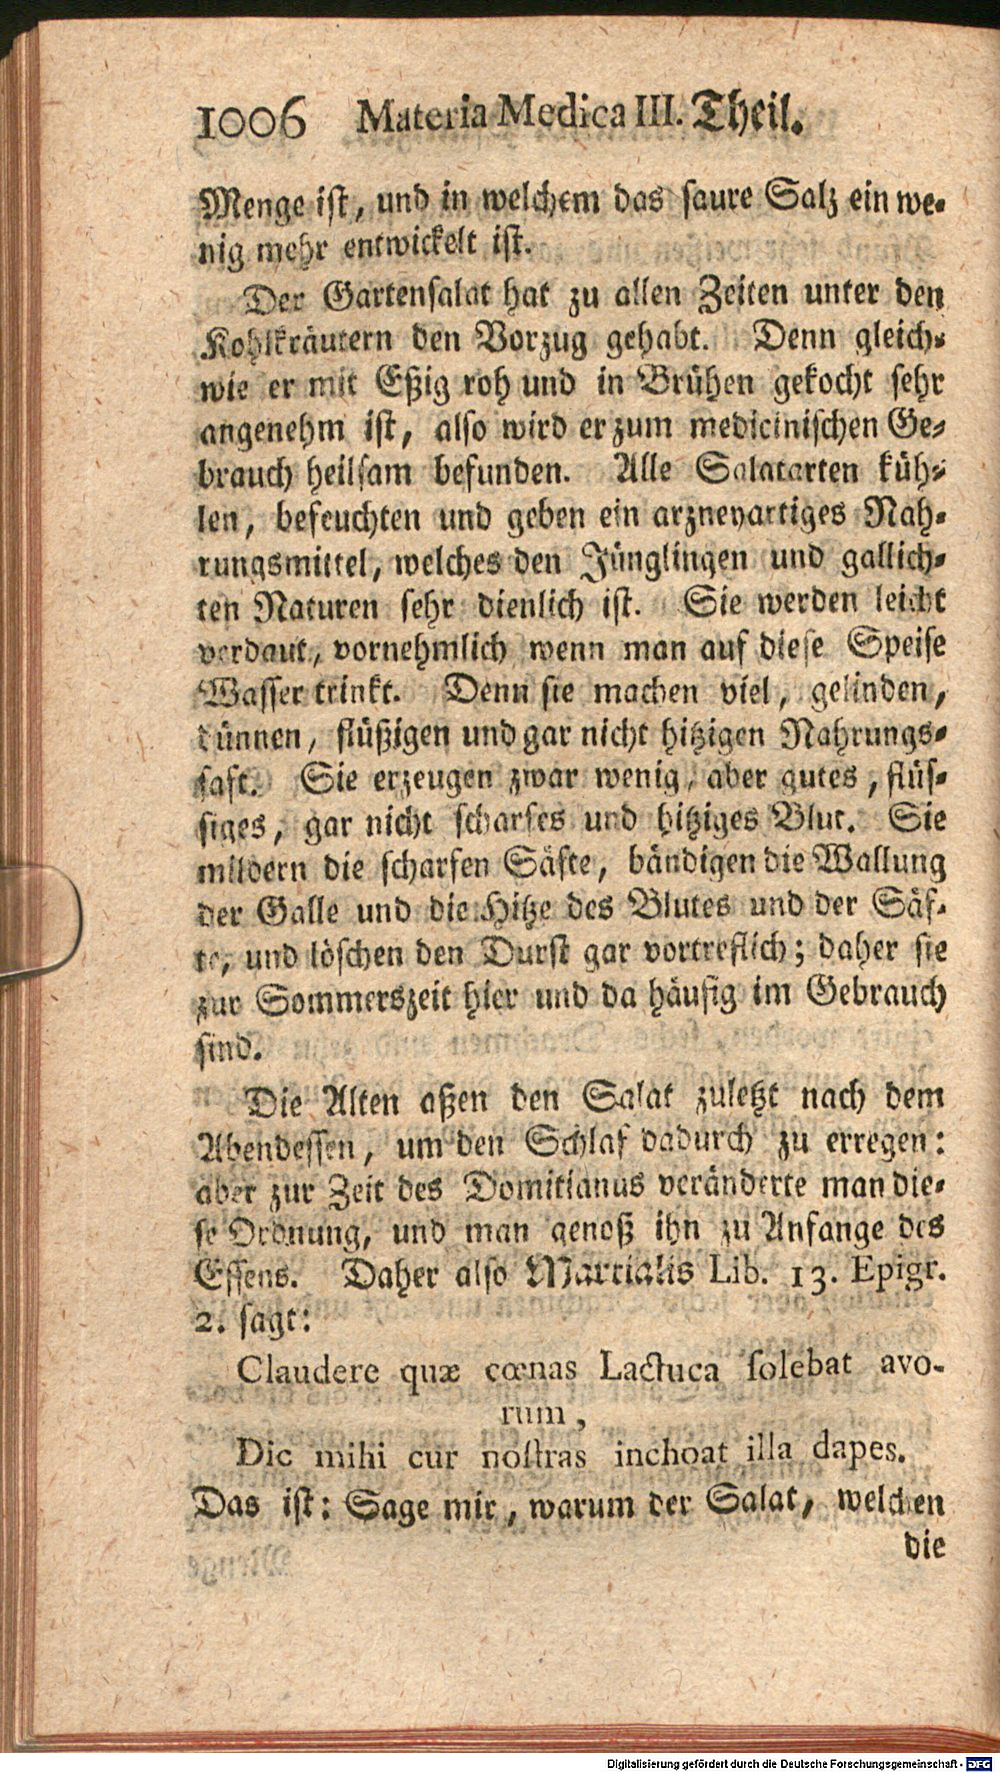 1006 Materia Medica III. Theil.
Menge iſt, und in welchem das ſaure Salz ein we-
nig mehr entwickelt iſt.
Der Gartenſalat hat zu allen Zeiten unter den
Kohlkräutern den Vorzug gehabt. Denn gleich-
wie er mit Eßig roh und in Brühen gekocht ſehr
angenehm iſt, alſo wird er zum mediciniſchen Ge-
brauch heilſam befunden. Alle Salatarten küh-
len, befeuchten und geben ein arzneyartiges Nah-
rungsmittel, welches den Jünglingen und gallich-
ten Naturen ſehr dienlich iſt. Sie werden leicht
verdaut, vornehmlich wenn man auf dieſe Speiſe
Waſſer trinkt. Denn ſie machen viel, gelinden,
dünnen, flüßigen und gar nicht hitzigen Nahrungs-
ſaft. Sie erzeugen zwar wenig, aber gutes, flüſ-
ſiges, gar nicht ſcharfes und hitziges Blut. Sie
mildern die ſcharfen Säfte, bändigen die Wallung
der Galle und die Hitze des Blutes und der Säf-
te, und löſchen den Durſt gar vortreflich; daher ſie
zur Sommerszeit hier und da häufig im Gebrauch
ſind.
Die Alten aßen den Salat zuletzt nach dem
Abendeſſen, um den Schlaf dadurch zu erregen:
aber zur Zeit des Domitianus veränderte man die-
ſe Ordnung, und man genoß ihn zu Anfange des
Eſſens. Daher alſo Martialis Lib. 13. Epigr.
2. ſagt:
Claudere quæ cœnas Lactuca ſolebat avo-
rum,
Dic mihi cur noſtras inchoat illa dapes.
Das iſt: Sage mir, warum der Salat, welchen
die
Digitalisierung gefördert durch die Deutsche Forschungsgemeinschaft - DFG